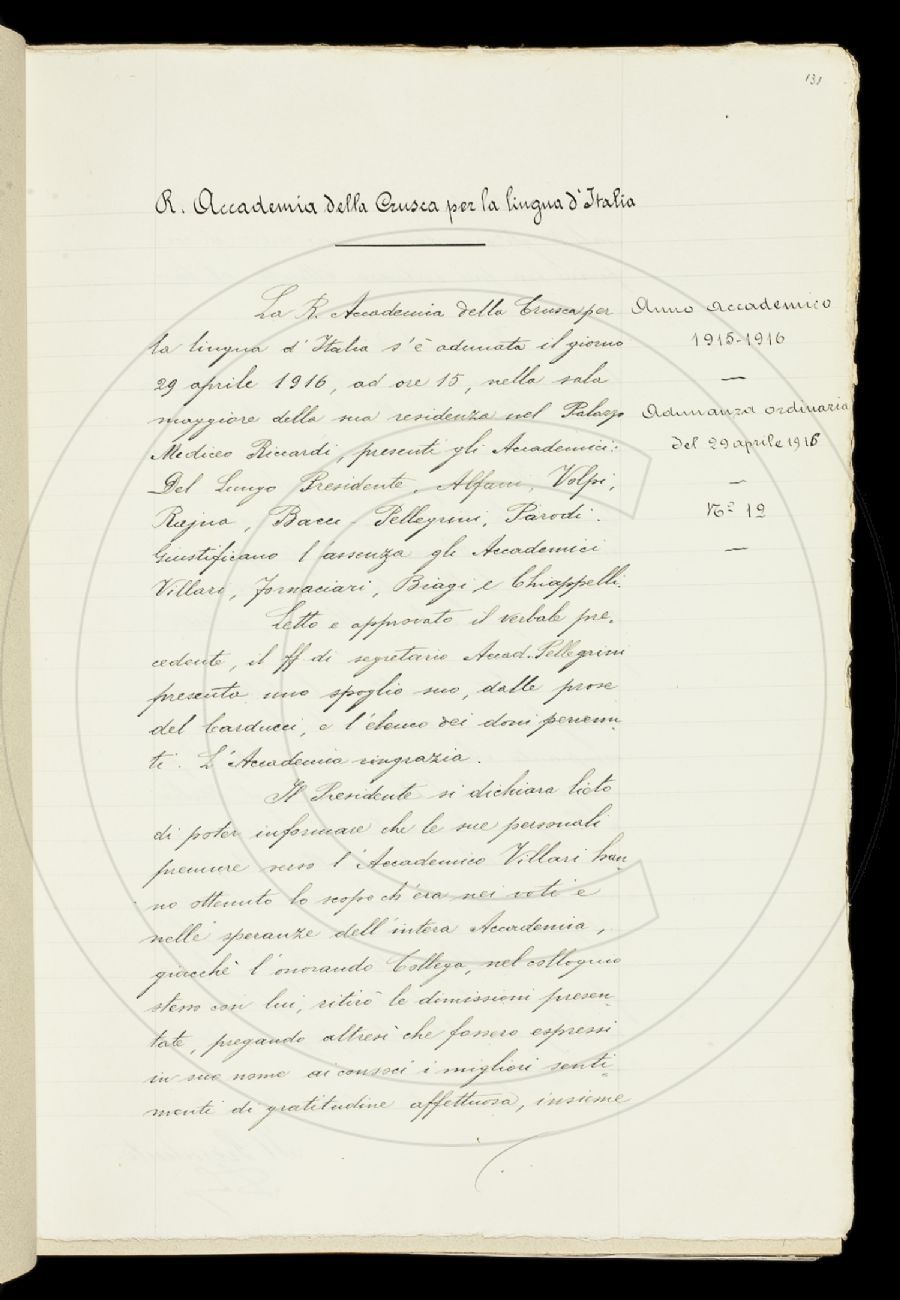 131
R. Accademia della Crusca per la lingua d'Italia
La R. Accademia della Crusca per
la lingua d'Italia s'è adunata il giorno
29 aprile 1916, ad ore 15, nella sala
maggiore della sua residenza nel Palazzo
Mediceo Riccardi, presenti gli Accademici:
Del Lungo Presidente, Alfani, Volpi,
Rajna, Bacci, Pellegrini, Parodi.
Giustificano l'assenza gli Accademici
Villari, Fornaciari, Biagi, e Chiappelli.
Letto e approvato il verbale pre-
cedente, il ff di segretario Accad. Pellegrini
presenta uno spoglio suo, dalle prose
del Carducci, e l'elenco dei doni pervenu-
ti. L'Accademia ringrazia.
Il Presidente si dichiara lieto
di poter informare che le sue personali
premure verso l'Accademico Villari han-
no ottenuto lo scopo ch'era nei voti e
nelle speranze dell'intera Accademia,
giacchè l'onorando Collega, nel colloquio
stesso con lui, ritirò le dimissioni presen-
tate, pregando altresì che fossero espressi
in suo nome ai consoci i migliori senti-
menti di gratitudine affettuosa, insieme
Anno accademico
1915-1916
Adunanza ordinaria
del 29 aprile 1916
N.º 12